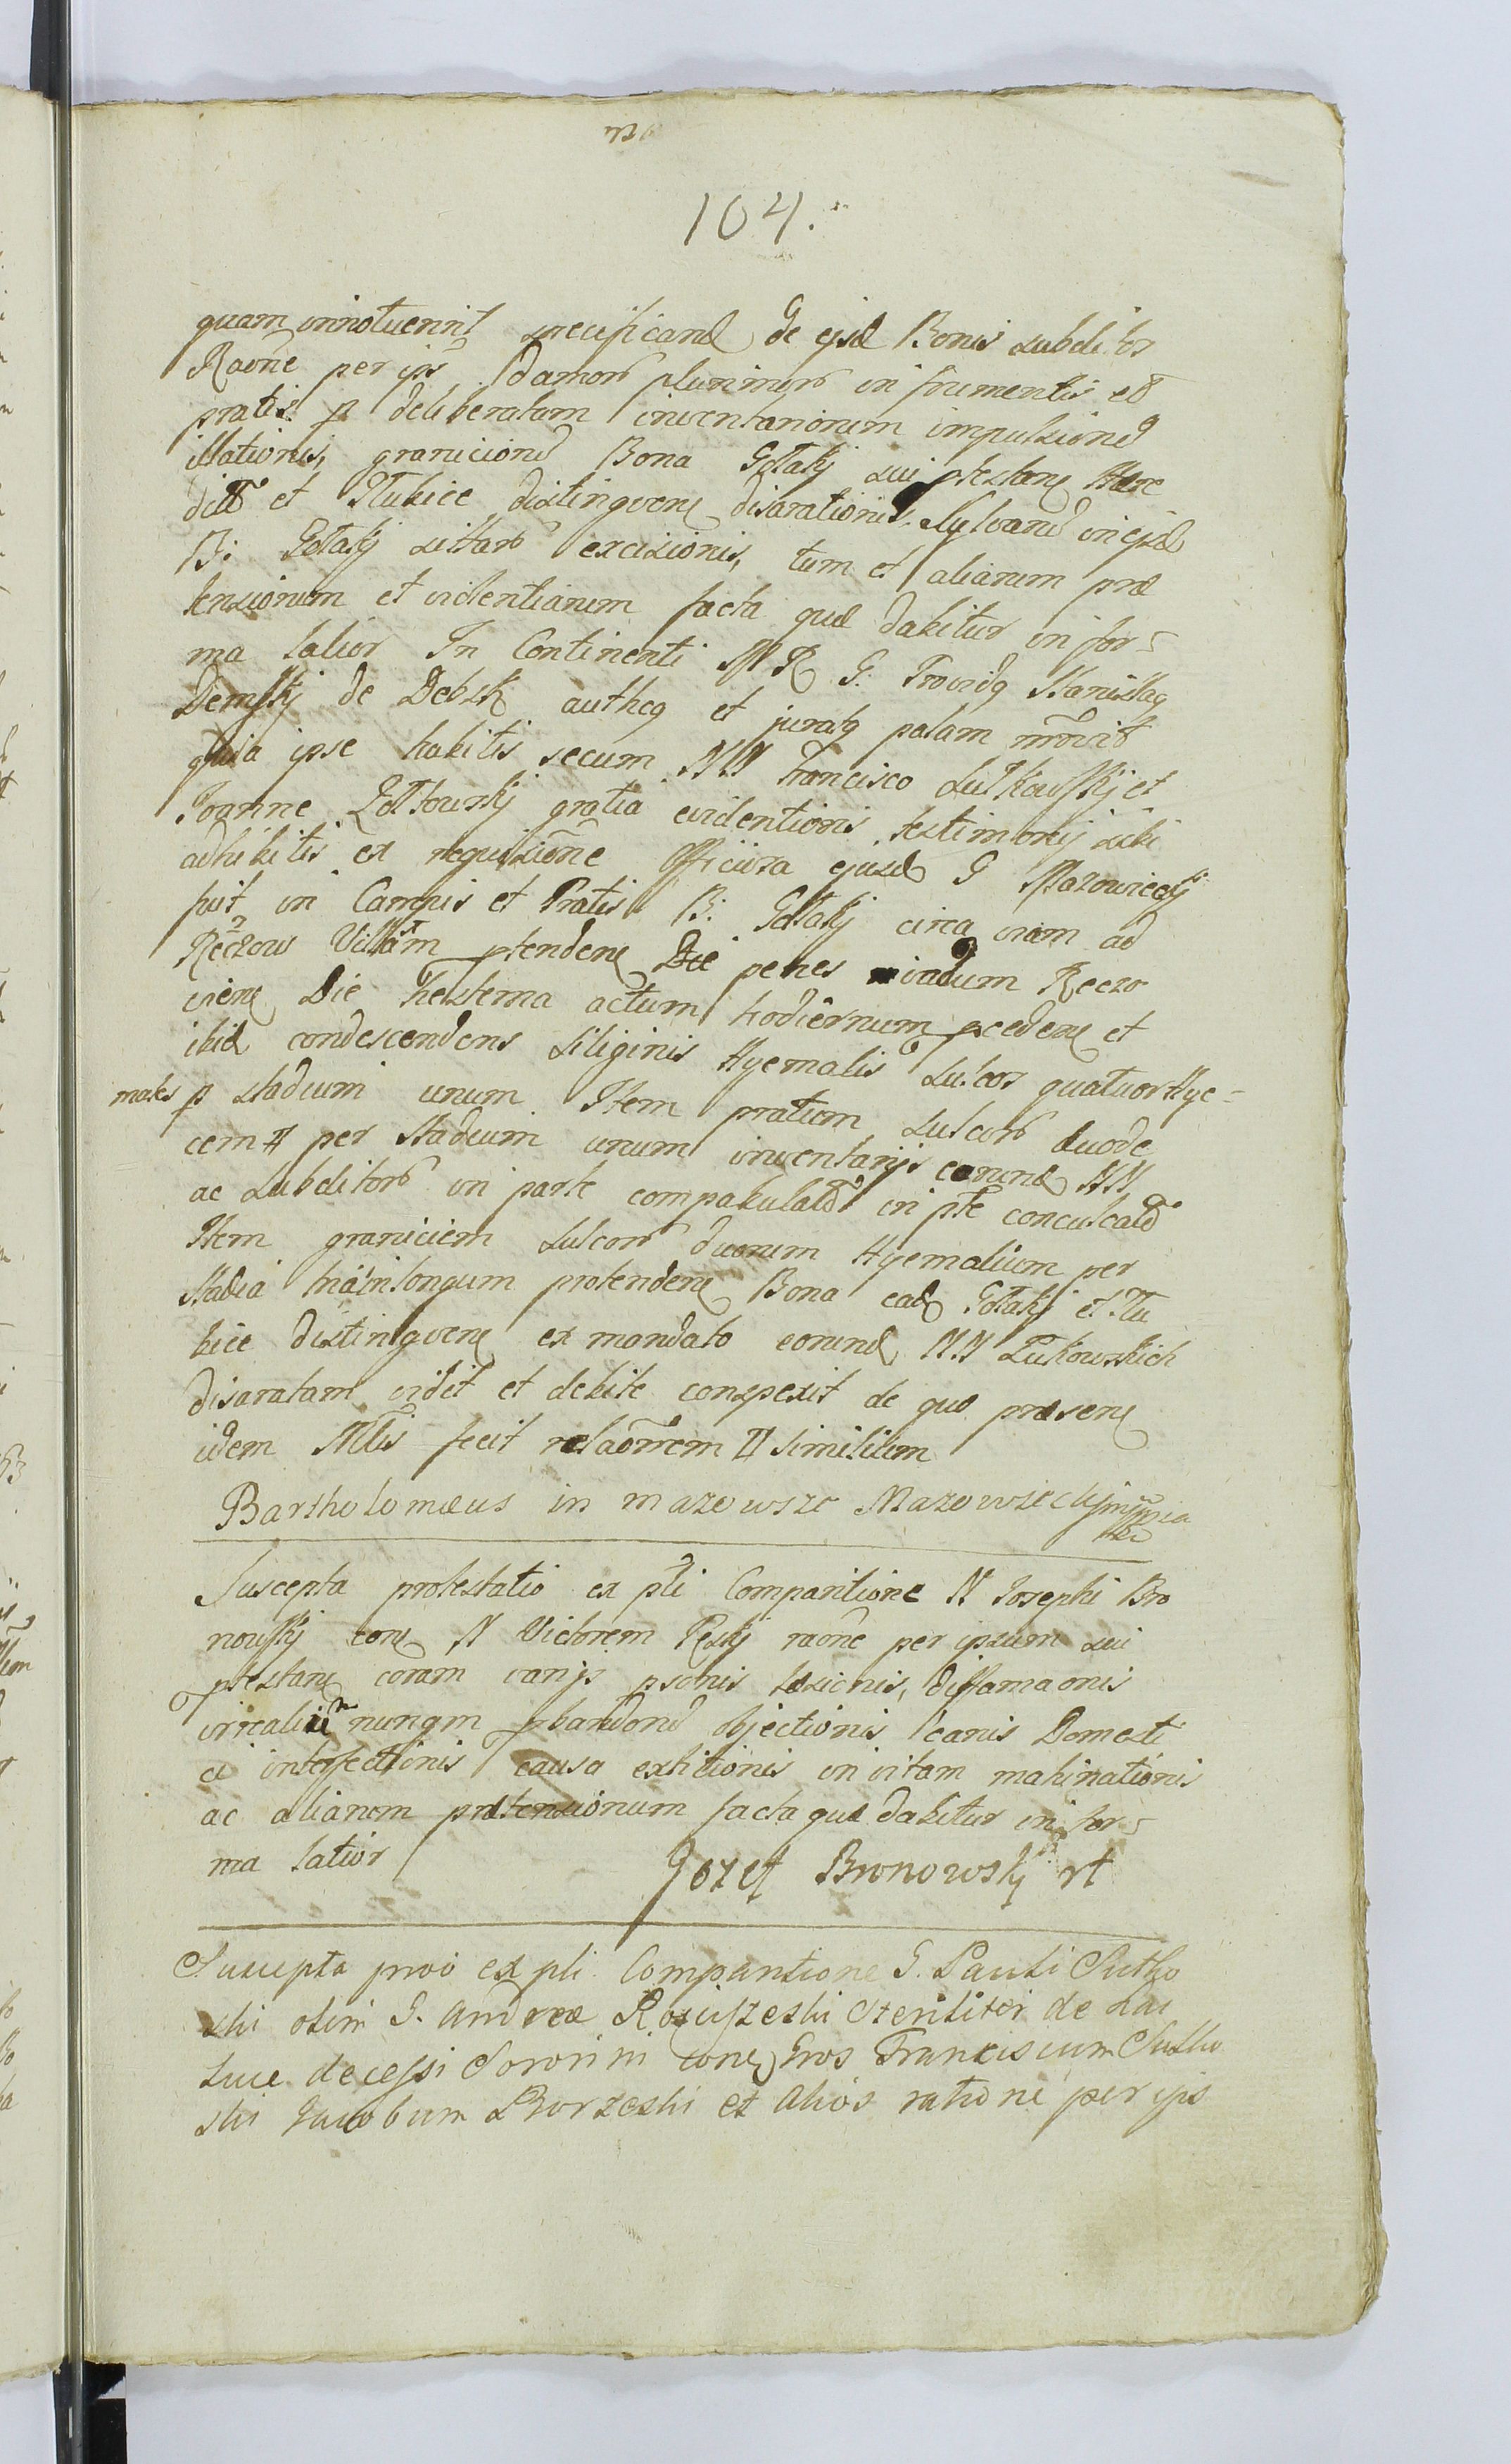 104.
quam innotuerint specificand de ejsd Bonis subditos
Raone per ips damor plurimor in frumentis et
pratis p deliberatam inventariorum impulsiond
illationis, graniciond Bona Gotakj sui ptestans Hære
ditt et Stubice distingvens disarationis, Sylvand in ejsd
B: Gotakj sittar excisionis, tum et aliarum præ
tensionum et videntiarum facta quæ dabitur in for=
ma latior In Continenti M R G. Providq Stanislaq
Dembskj de Debsk autheq et juratq palam
quia ipse habitis secum NN Francisco Lutkowskj et
Joanne Zoltowskj gratia evidentioris testimonij sibi
adhibitis ex requisitione Officiosa ejusd G Mazowieckj
fuit in Campis et Pratis B: Gotakj circa viam ad
Reczow Villam ptendens penes viadum Reczo
viens Die hesterna actum hodiernum pcedens et
ibid condescendens siliginis Hyemalis sulcos quatuor Hye=
males p stadium unum Item pratum sulcor duode
cem per stadium unum inventarijs eorund NN
ac subditor in parte compabulatt in pte conculcatt
Item graniciem sulcor duorum Hyemalium per
stadia tria in longum protendens Bona ead Gotakj et Stu
bice distingvens ex mandato eorund NN Lukowskich
disaratam vidit et debite conspexit de quo præsens
idem Mtlis fecit relaonem similium
Bartholomæus in mazowsze Mazowieckj
Suscepta protestatio ex pli Comparitione N Josephi Bro
nowskj cons N Victorem Reskj raone per ipsum sui
ptestans coram varijs psonis læsionis, diffamaonis
irrealium nunqm pbandond objectionis, canis Domesti
ci interfectionis causa extitionis in vitam mahinationis
ac aliarum prætensionum facta quæ dabitur in for=
ma latior
Jozef Bronowskj
Suscepta pnoo ex pli Comparitione G. Pauli Sutko
ski olim G. Andreæ Rosciszeski steriliter de hac
Luce decessi Sororini cons Gros Franciscum Sutko
ski Jacobum Borzeski et Alios ratione per ips